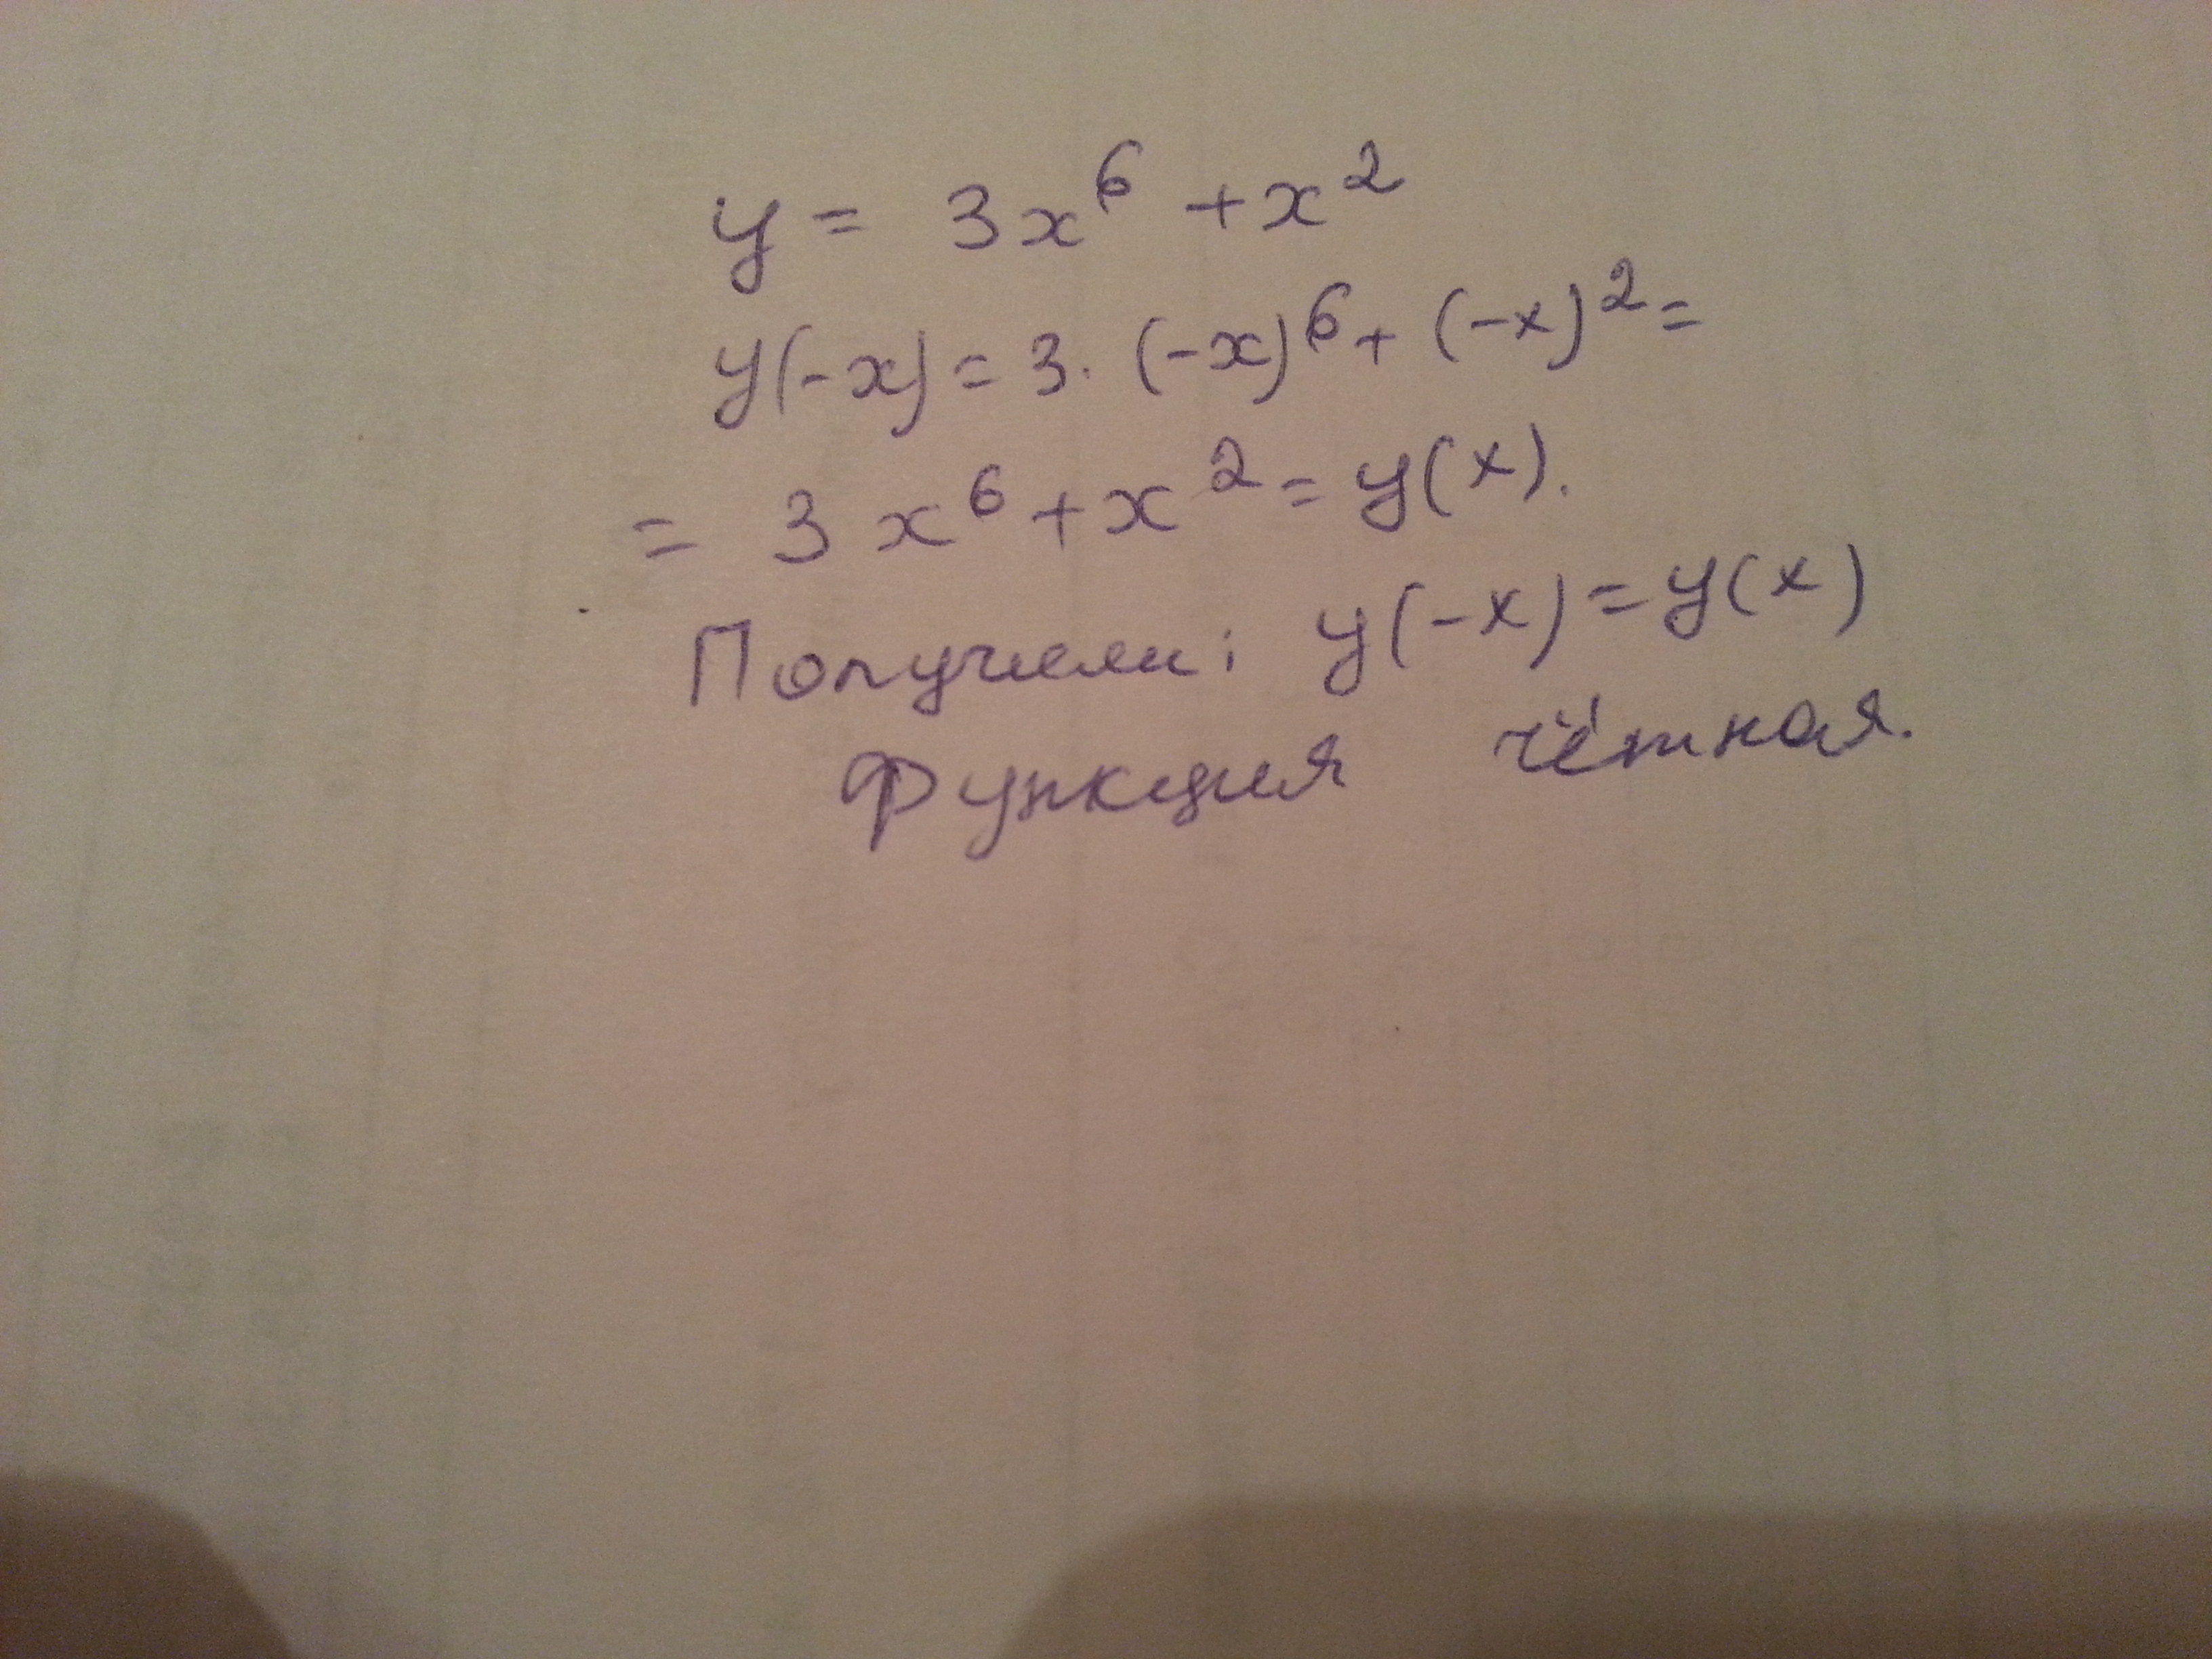 y = 3x⁶ + x²
y(-x) = 3 · (-x)⁶ + (-x)² =
= 3x⁶ + x² = y(x).
Получили: y(-x) = y(x)
Функция чётная.